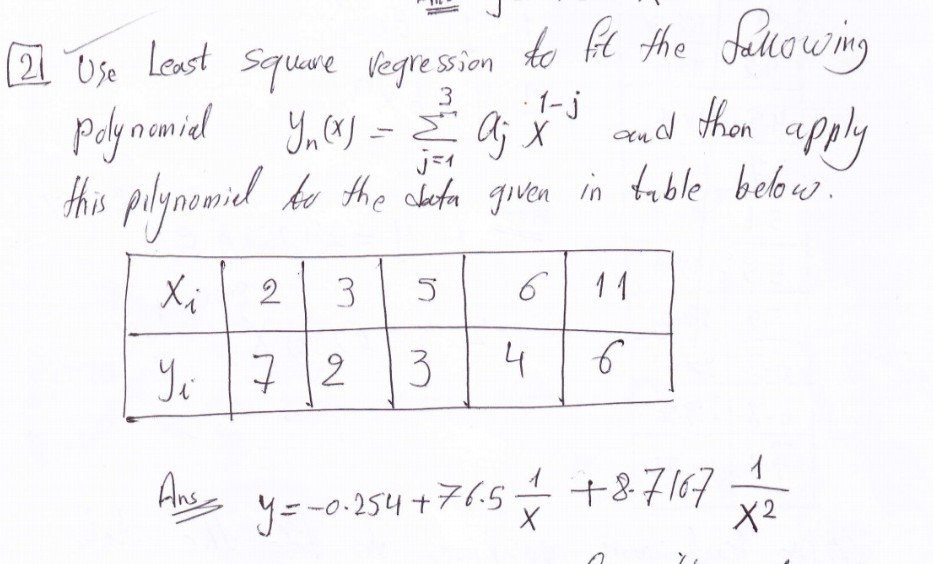 2 Use Least square regression to fit the following
polynomial yn(x) = Σ_{j=1}^{3} aj x^{1-j} and then apply
this pilynomiel to the data given in table below.
xi 2 3 5 6 11
yi 7 2 3 4 6
Ans y = -0.254 + 76.5 1/x + 8.7167 1/x²